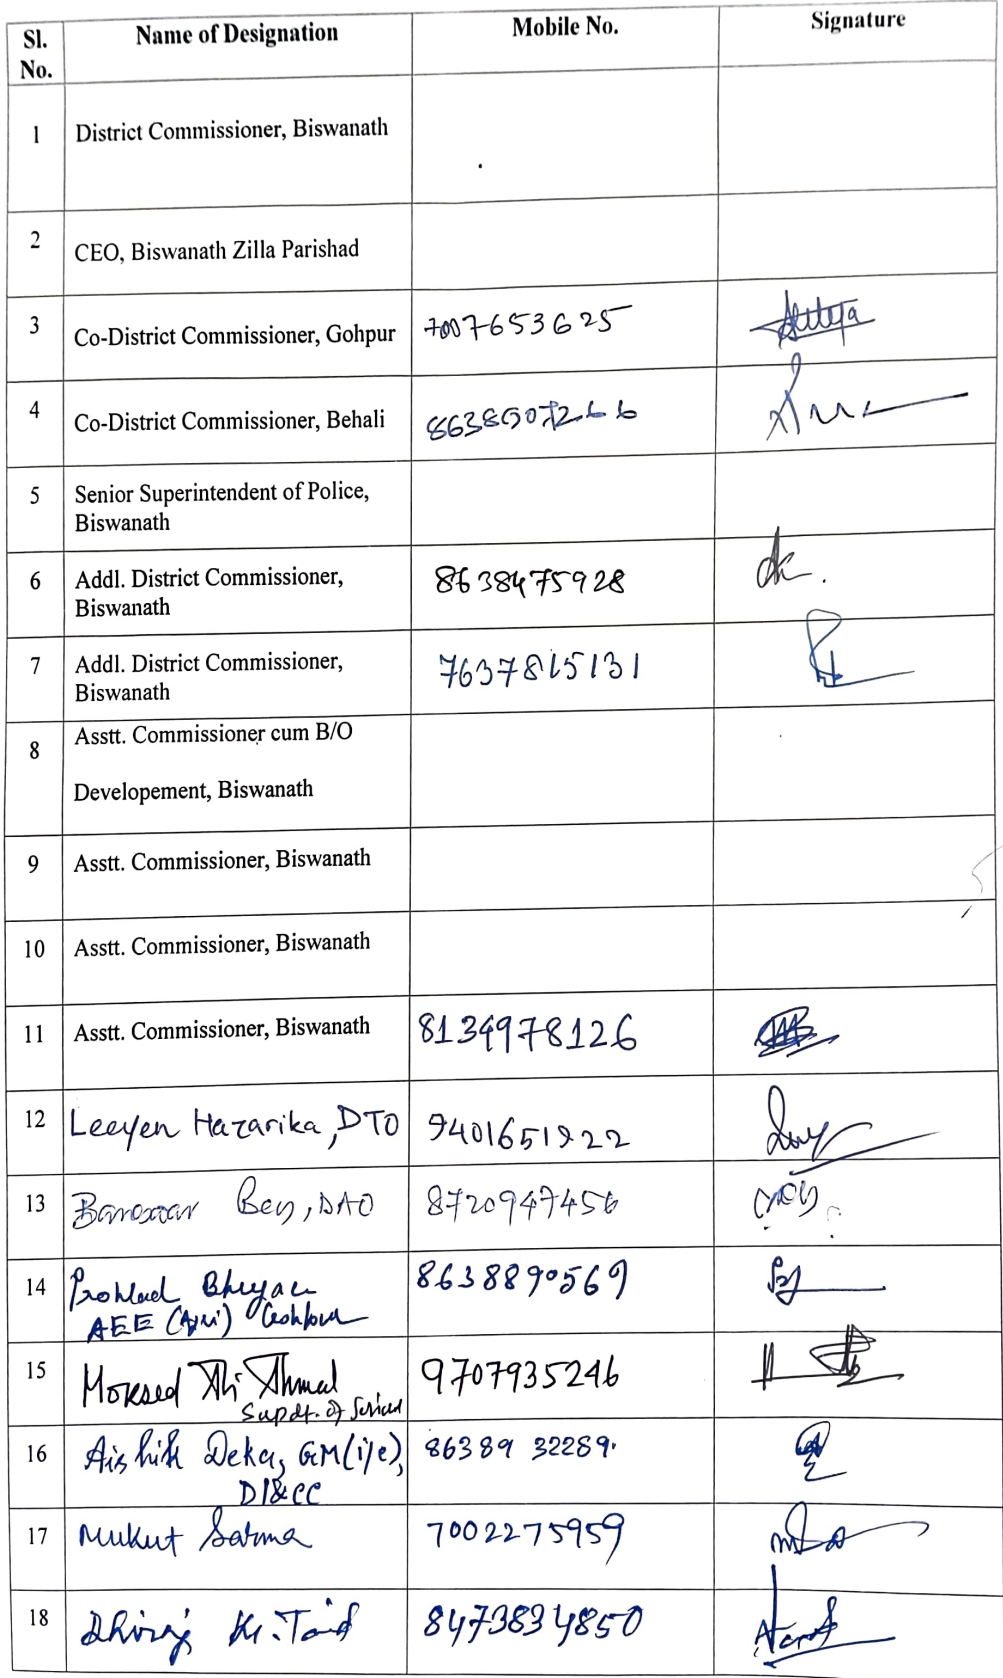 Sl. No. Name of Designation Mobile No. Signature
1 District Commissioner, Biswanath
2 CEO, Biswanath Zilla Parishad
3 Co-District Commissioner, Gohpur 7007653625
4 Co-District Commissioner, Behali 8638507266
5 Senior Superintendent of Police,
Biswanath
6 Addl. District Commissioner, 8638475928
Biswanath
7 Addl. District Commissioner, 7637815131
Biswanath
8 Asstt. Commissioner cum B/O
Developement, Biswanath
9 Asstt. Commissioner, Biswanath
10 Asstt. Commissioner, Biswanath
11 Asstt. Commissioner, Biswanath 8134978126
12 Leeyen Hazarika, DTO 9401651922
13 Bey, DAO 8720947456
14 Prohlad Bhuyan 8638890569
AEE (Agri) Gohpur
15 Moksed Ali Ahmed 9707935246
Supdt. of
16 Aishik Deka, GM(i/c), 86389 32289
DI&CC
17 Mukut Sarma 7002275959
18 Dhiraj Kr. Taid 8473834850